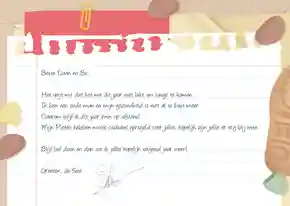 Beste Daan en Bo,
Het spijt mij dat het mij dit jaar niet lukt om langs te komen.
Ik ben een oude man en mijn gezondheid is niet al te best meer.
Daarom blijf ik dit jaar even op afstand.
Mijn Pieten hebben mooie cadeaus geregeld voor jullie, hopelijk zijn jullie er erg blij mee.
Blijf lief doen en dan zie ik jullie hopelijk volgend jaar weer!
Groeten, de Sint